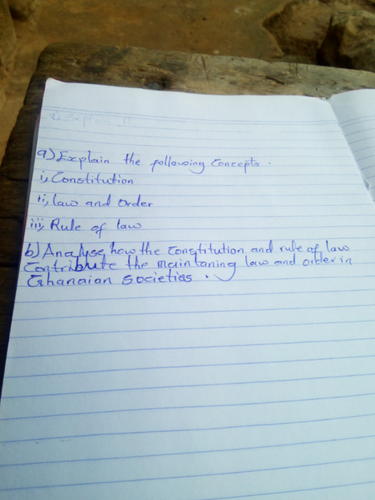 a) Explain the following Concepts.
i, Constitution
ii, law and Order
iii, Rule of law
b) Analyse how the Constitution and rule of law
Contribute the maintaning law and order in
Ghanaian Societies.